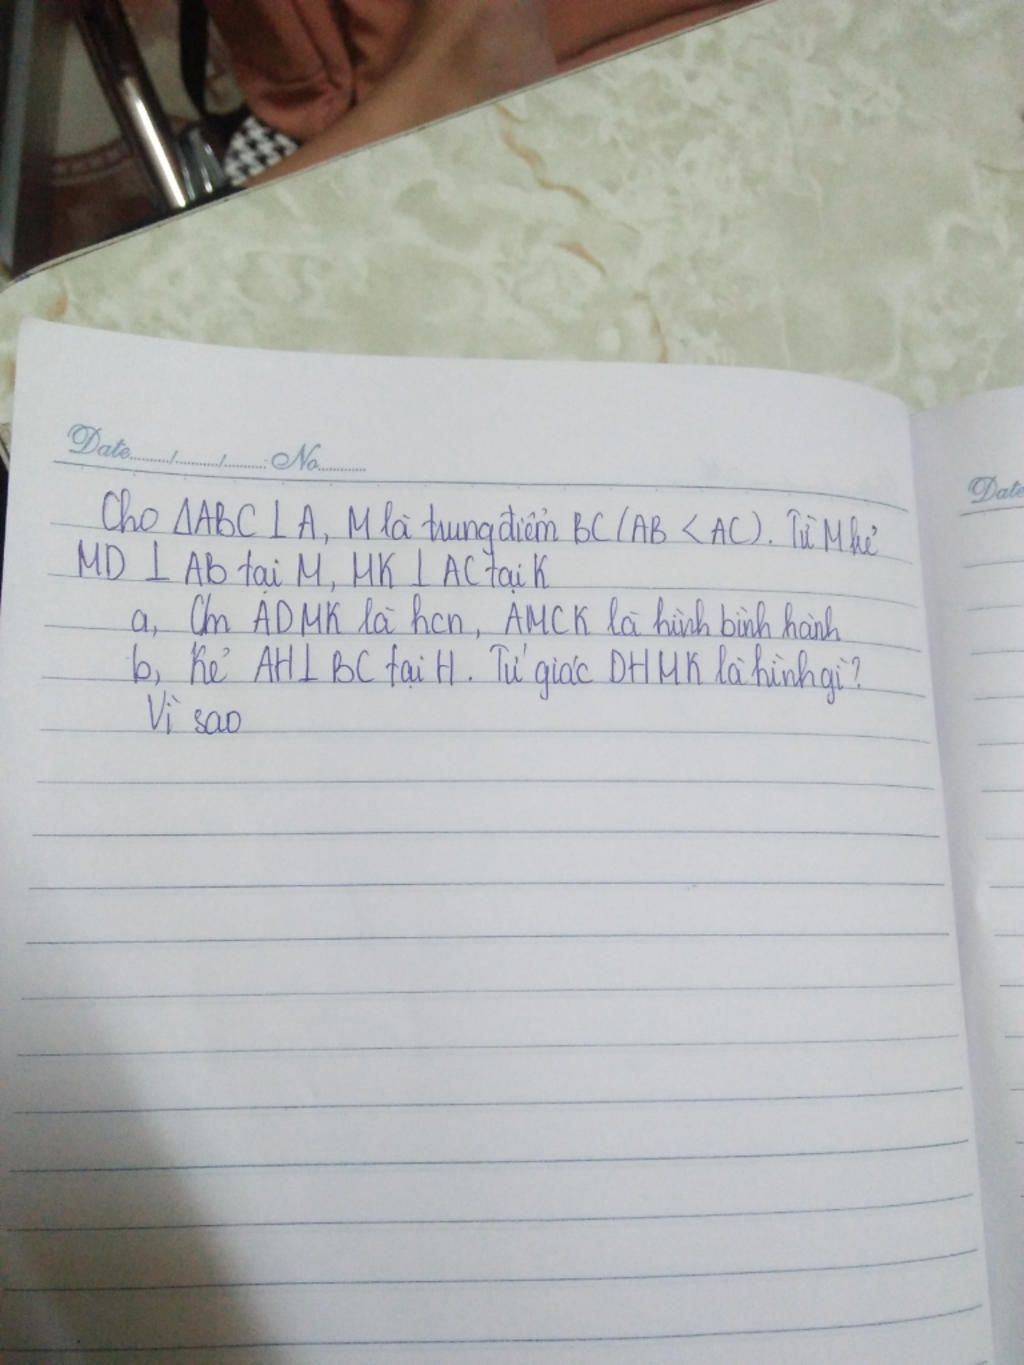 Date......./......./....... No.......
Cho ΔABC ⊥ A, M là trung điểm BC (AB < AC). Từ M kẻ
MD ⊥ AB tại M, MK ⊥ AC tại K
a, Cm ADMK là hcn, AMCK là hình bình hành
b, Kẻ AH ⊥ BC tại H. Tứ giác DHMK là hình gì?
Vì sao
Date